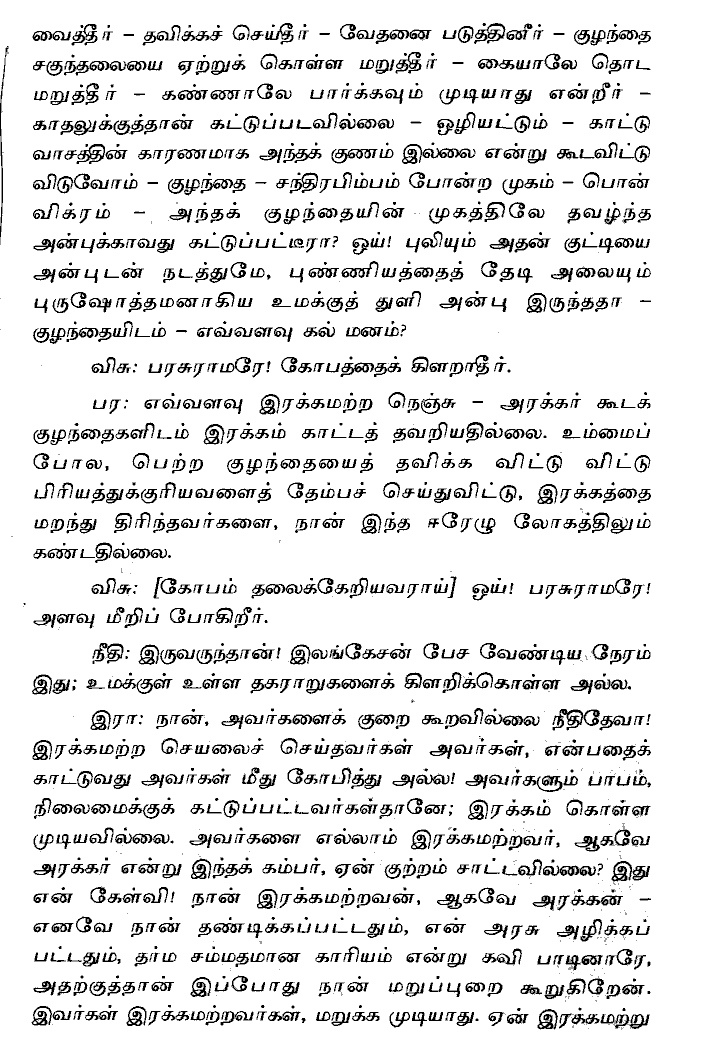 வைத்தீர் – தவிக்கச் செய்தீர் – வேதனை படுத்தினீர் – குழந்தை
சகுந்தலையை ஏற்றுக் கொள்ள மறுத்தீர் – கையாலே தொட
மறுத்தீர் – கண்ணாலே பார்க்கவும் முடியாது என்றீர் –
காதலுக்குத்தான் கட்டுப்படவில்லை – ஒழியட்டும் – காட்டு
வாசத்தின் காரணமாக அந்தக் குணம் இல்லை என்று கூடவிட்டு
விடுவோம் – குழந்தை – சந்திரபிம்பம் போன்ற முகம் – பொன்
விக்ரம் – அந்தக் குழந்தையின் முகத்திலே தவழ்ந்த
அன்புக்காவது கட்டுப்பட்டீரா? ஒய்! புலியும் அதன் குட்டியை
அன்புடன் நடத்துமே, புண்ணியத்தைத் தேடி அலையும்
புருஷோத்தமனாகிய உமக்குத் துளி அன்பு இருந்ததா –
குழந்தையிடம் – எவ்வளவு கல் மனம்?
விசு: பரசுராமரே! கோபத்தைக் கிளறாதீர்.
பர: எவ்வளவு இரக்கமற்ற நெஞ்சு – அரக்கர் கூடக்
குழந்தைகளிடம் இரக்கம் காட்டத் தவறியதில்லை. உம்மைப்
போல, பெற்ற குழந்தையைத் தவிக்க விட்டு விட்டு
பிரியத்துக்குரியவளைத் தேம்பச் செய்துவிட்டு, இரக்கத்தை
மறந்து திரிந்தவர்களை, நான் இந்த ஈரேழு லோகத்திலும்
கண்டதில்லை.
விசு: [கோபம் தலைக்கேறியவராய்] ஒய்! பரசுராமரே!
அளவு மீறிப் போகிறீர்.
நீதி: இருவருந்தான்! இலங்கேசன் பேச வேண்டிய நேரம்
இது; உமக்குள் உள்ள தகராறுகளைக் கிளறிக்கொள்ள அல்ல.
இரா: நான், அவர்களைக் குறை கூறவில்லை நீதிதேவா!
இரக்கமற்ற செயலைச் செய்தவர்கள் அவர்கள், என்பதைக்
காட்டுவது அவர்கள் மீது கோபித்து அல்ல! அவர்களும் பாபம்,
நிலைமைக்குக் கட்டுப்பட்டவர்கள்தானே; இரக்கம் கொள்ள
முடியவில்லை. அவர்களை எல்லாம் இரக்கமற்றவர், ஆகவே
அரக்கர் என்று இந்தக் கம்பர், ஏன் குற்றம் சாட்டவில்லை? இது
என் கேள்வி! நான் இரக்கமற்றவன், ஆகவே அரக்கன் –
எனவே நான் தண்டிக்கப்பட்டதும், என் அரசு அழிக்கப்
பட்டதும், தர்ம சம்மதமான காரியம் என்று கவி பாடினாரே,
அதற்குத்தான் இப்போது நான் மறுப்புறை கூறுகிறேன்.
இவர்கள் இரக்கமற்றவர்கள், மறுக்க முடியாது. ஏன் இரக்கமற்று